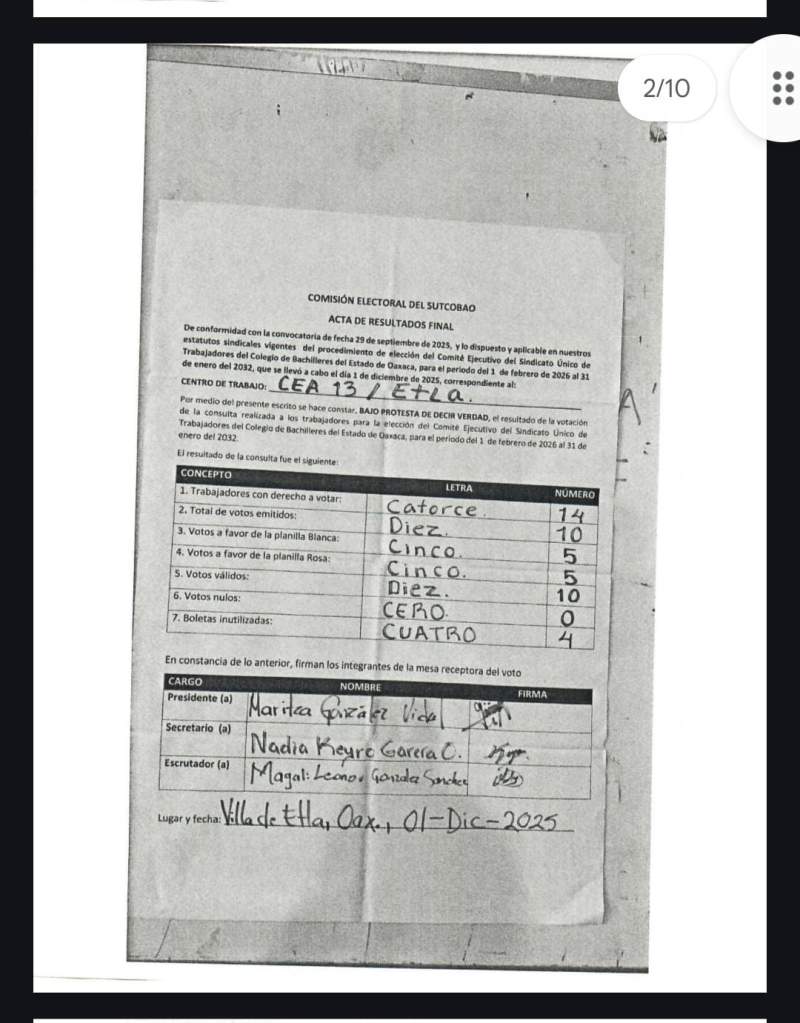 2/10
COMISIÓN ELECTORAL DEL SUTCOBAO
ACTA DE RESULTADOS FINAL
De conformidad con la convocatoria de fecha 29 de septiembre de 2025, y lo dispuesto y aplicable en nuestros
estatutos sindicales vigentes del procedimiento de elección del Comité Ejecutivo del Sindicato Único de
Trabajadores del Colegio de Bachilleres del Estado de Oaxaca, para el periodo del 1 de febrero de 2026 al 31
de enero del 2032, que se llevó a cabo el día 1 de diciembre de 2025, correspondiente al:
CENTRO DE TRABAJO: CEA 13 / Etla.
Por medio del presente escrito se hace constar, BAJO PROTESTA DE DECIR VERDAD, el resultado de la votación
de la consulta realizada a los trabajadores para la elección del Comité Ejecutivo del Sindicato Único de
Trabajadores del Colegio de Bachilleres del Estado de Oaxaca, para el periodo del 1 de febrero de 2026 al 31 de
enero del 2032.
El resultado de la consulta fue el siguiente:
CONCEPTO LETRA NÚMERO
1. Trabajadores con derecho a votar: Catorce. 14
2. Total de votos emitidos: Diez. 10
3. Votos a favor de la planilla Blanca: Cinco. 5
4. Votos a favor de la planilla Rosa: Cinco. 5
5. Votos válidos: Diez. 10
6. Votos nulos: CERO. 0
7. Boletas inutilizadas: CUATRO 4
En constancia de lo anterior, firman los integrantes de la mesa receptora del voto
CARGO NOMBRE FIRMA
Presidente (a) Maritza González Vidal
Secretario (a) Nadia Garcia C.
Escrutador (a) Magali Leonor Sanchez
Lugar y fecha: Villa de Etla, Oax., 01-Dic-2025